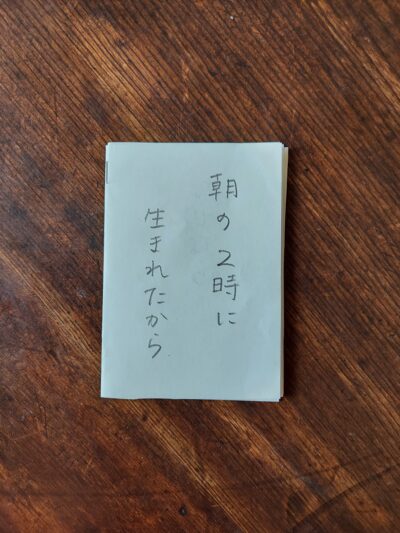 朝の2時に
生まれたから